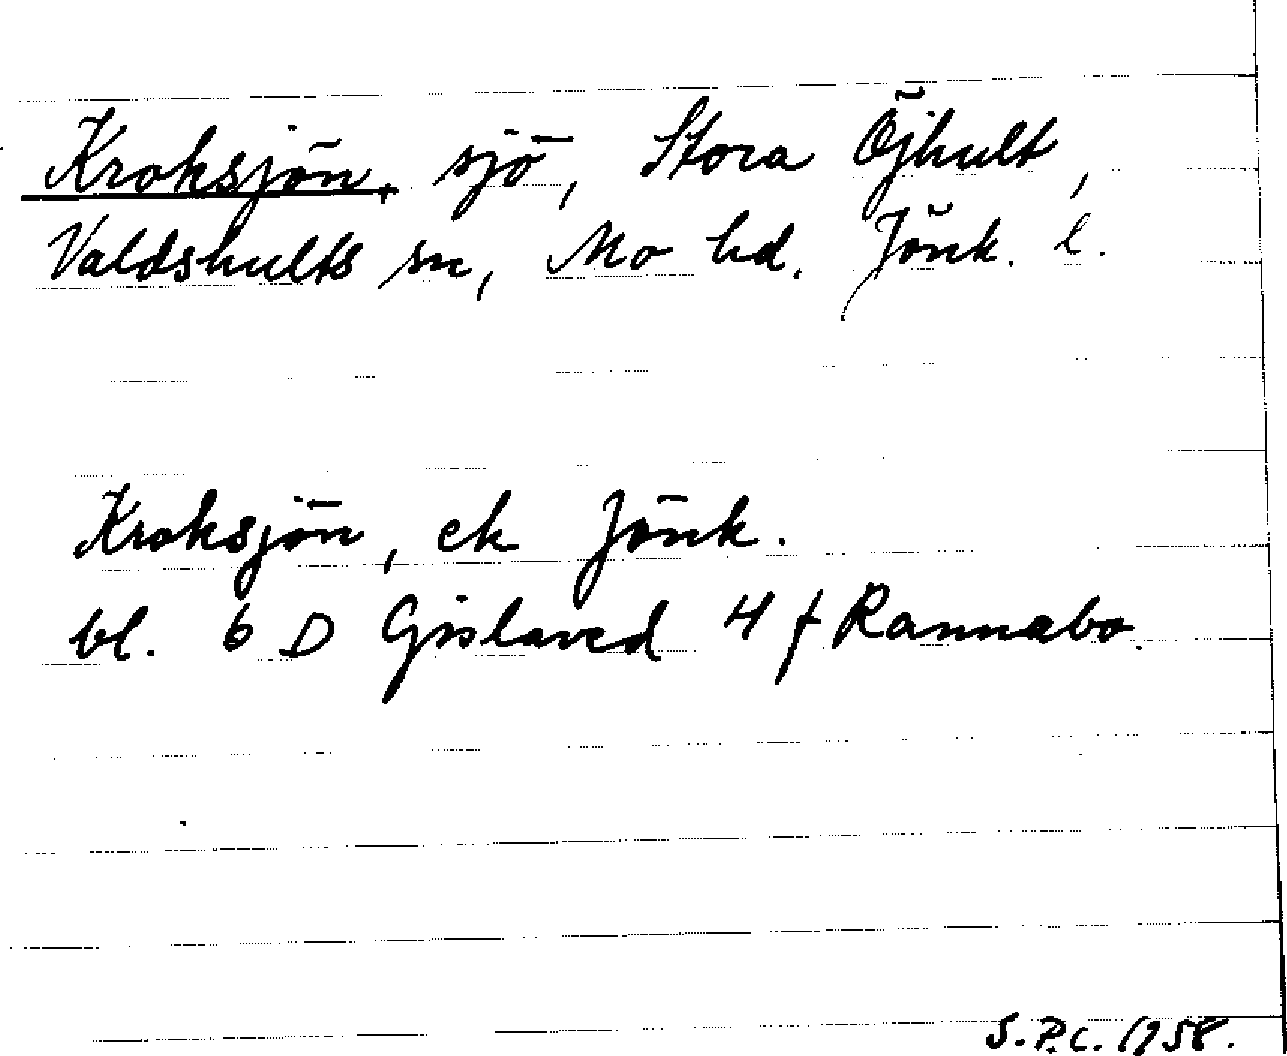 Kroksjön, sjö, Stora Öjhult,
Valdshults sn, Mo hd. Jönk. l.
Kroksjön, ek Jönk.
bl. 6 D Gislaved 4 f Rannabo.
S.P.C. 1958.